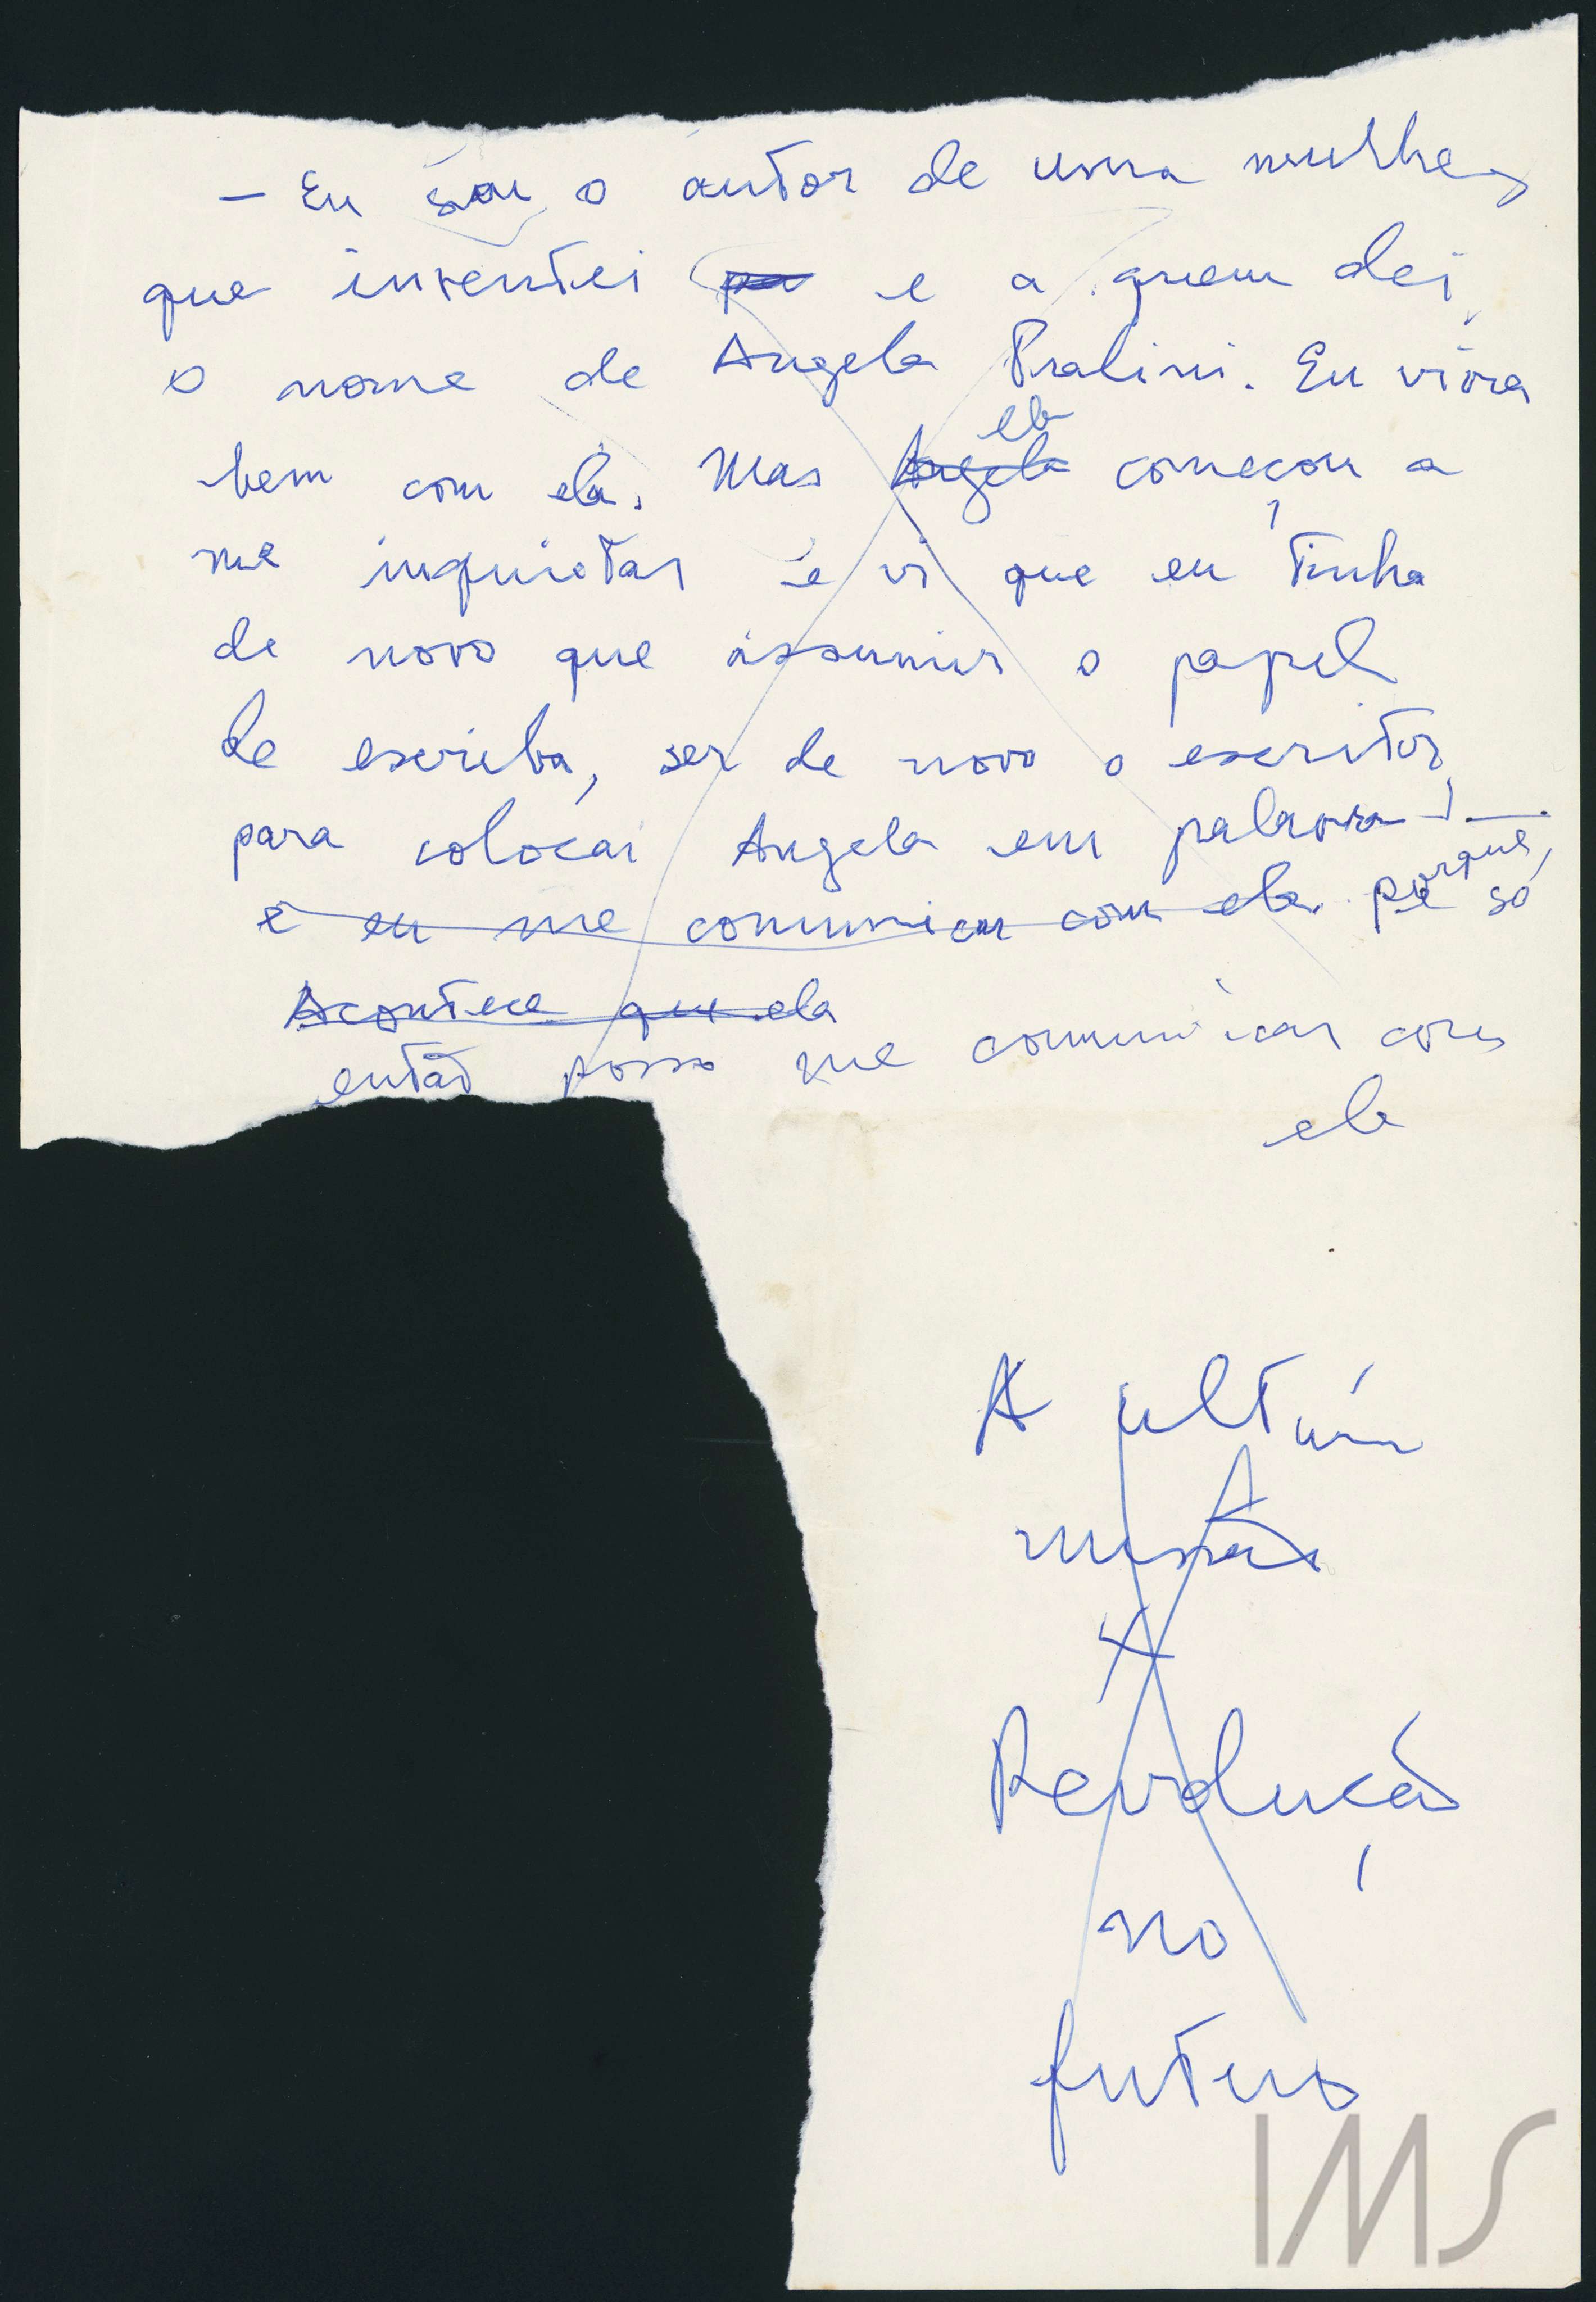 — Eu sou o autor de uma mulher
que inventei pa e a quem dei
o nome de Angela Pralini. Eu vivia
bem com ela. Mas Angela ela começou a
me inquietar e vi que eu tinha
de novo que assumir o papel
de escriba, ser de novo o escritor
para colocar Angela em palavra
e eu me comunicar com ela. porque só
Acontece que ela
então posso me comunicar com
ela
A ultima
missão
A
Revolução
no
futuro
IMS